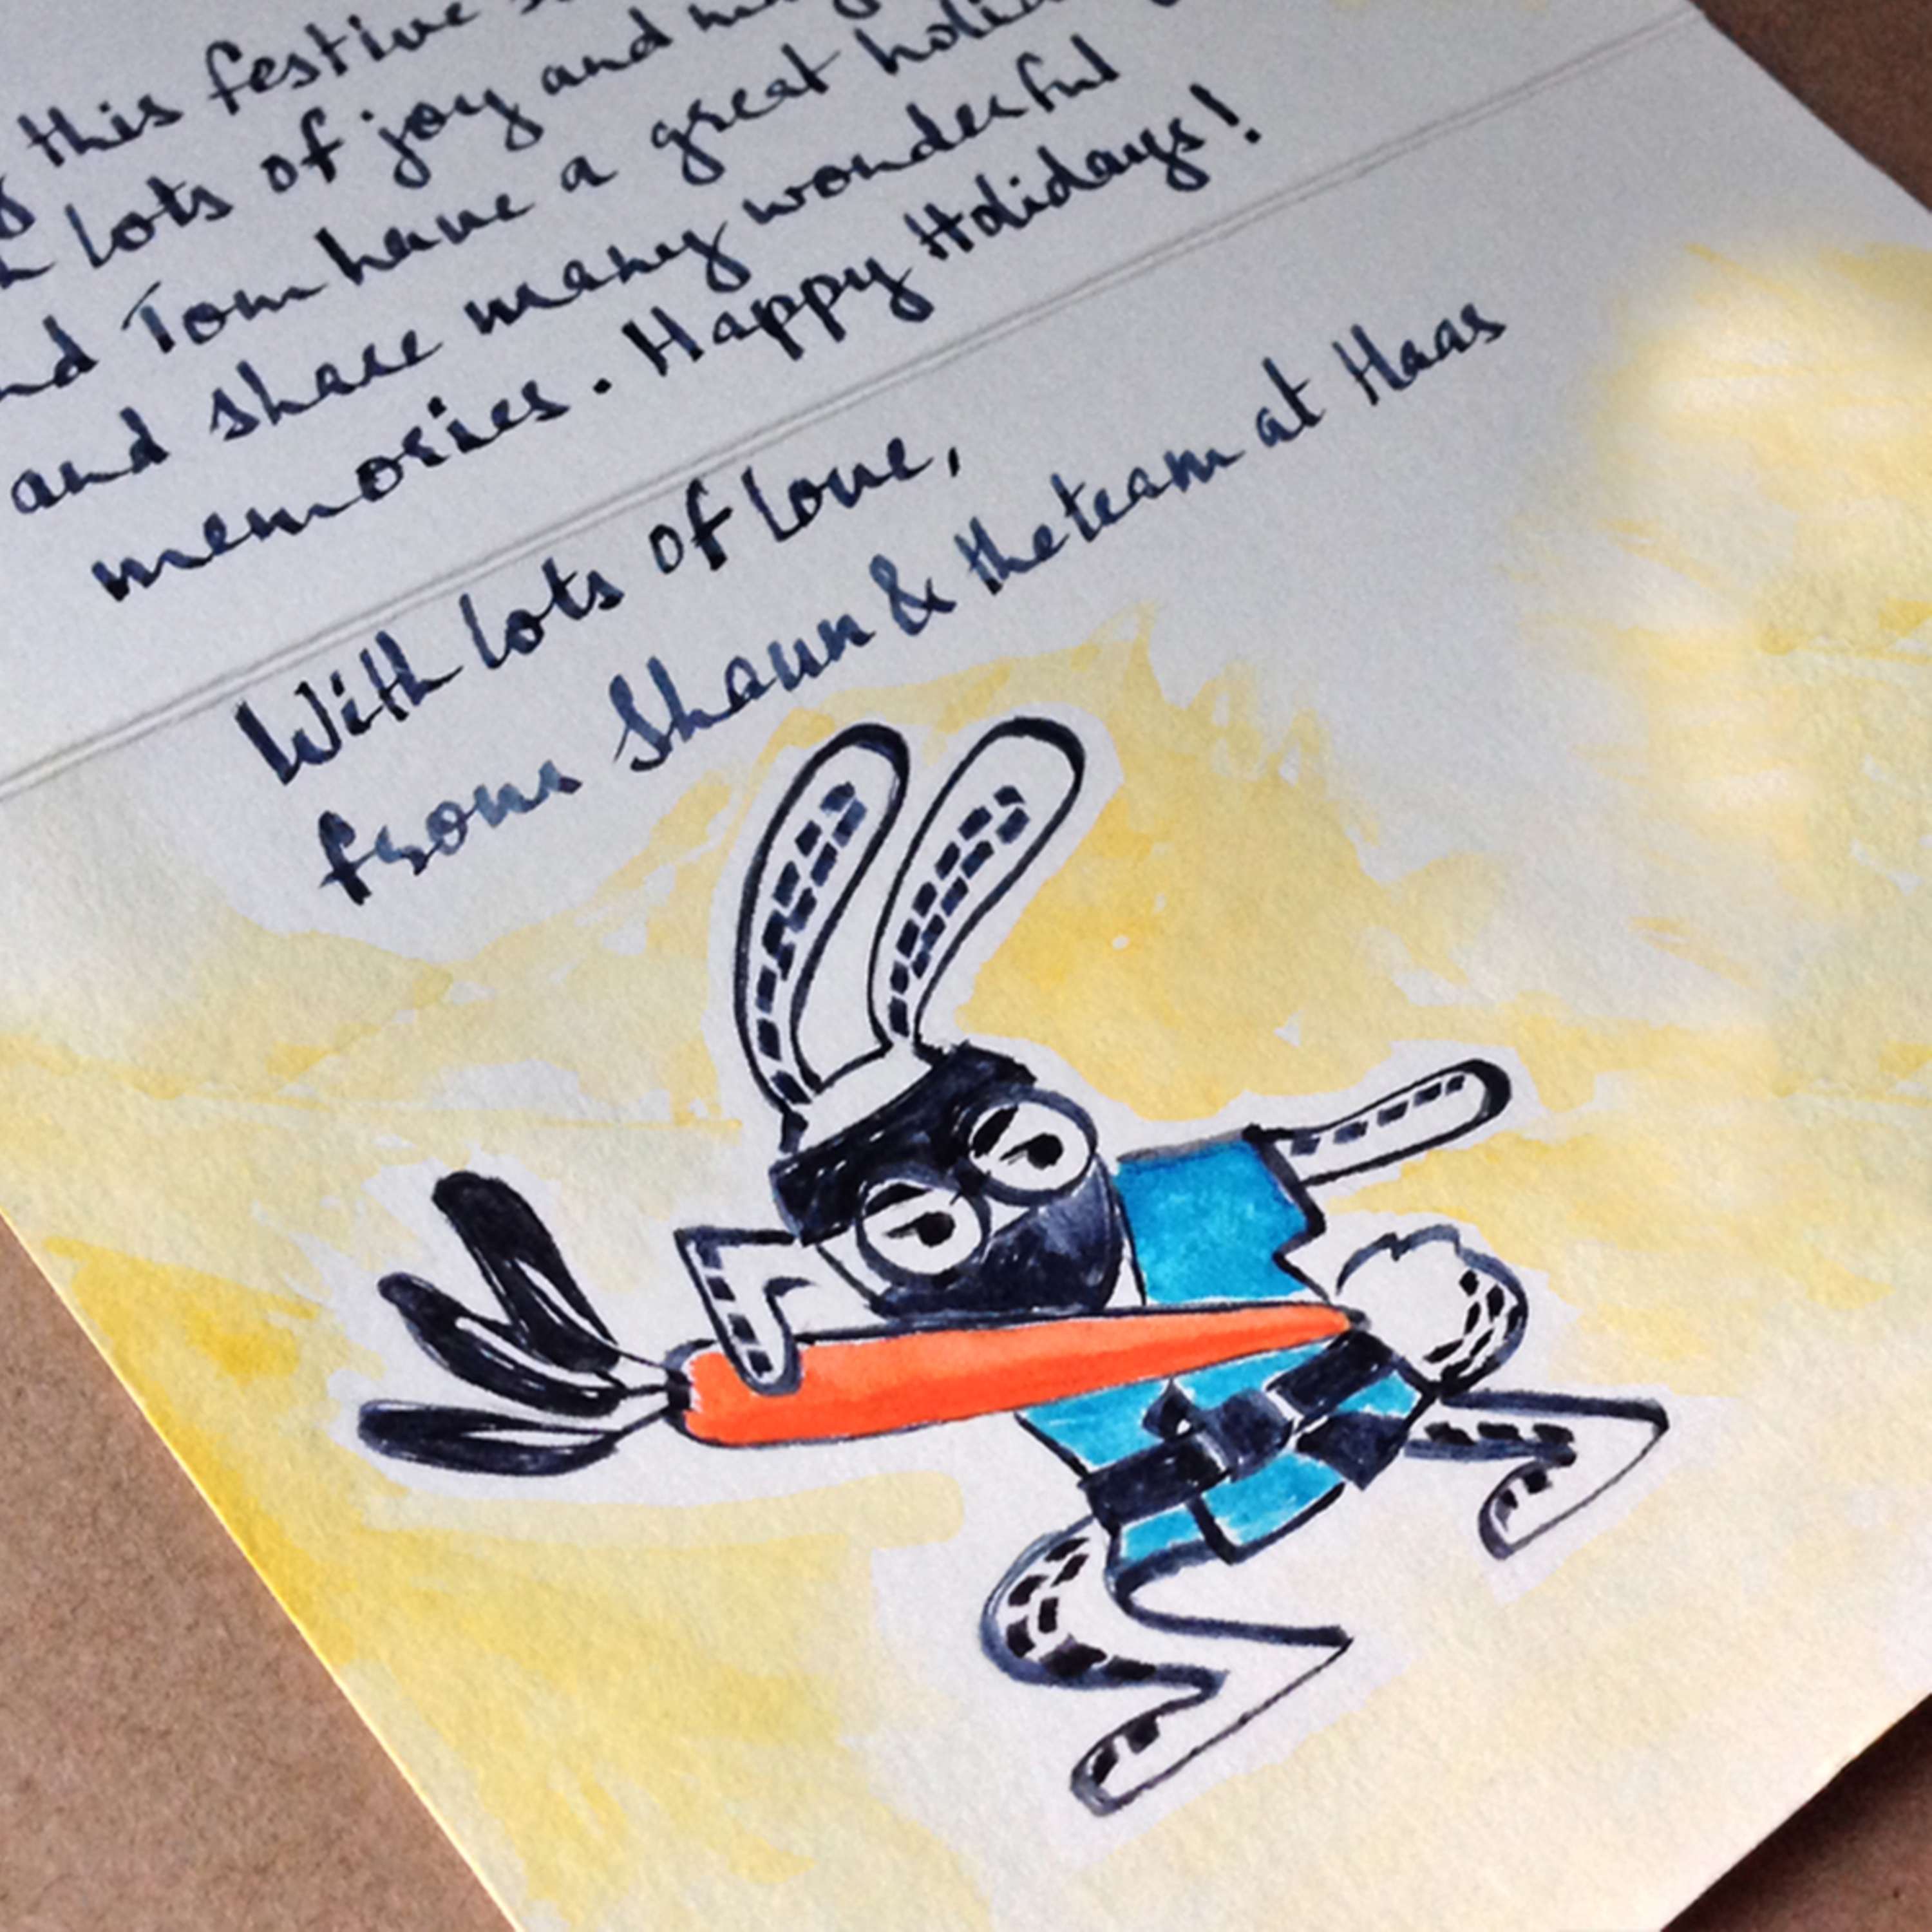 this festive
lots of joy and
Tom have a great
and share many wonderful
memories. Happy Holidays!
With lots of love,
from Shaun & the team at Haas